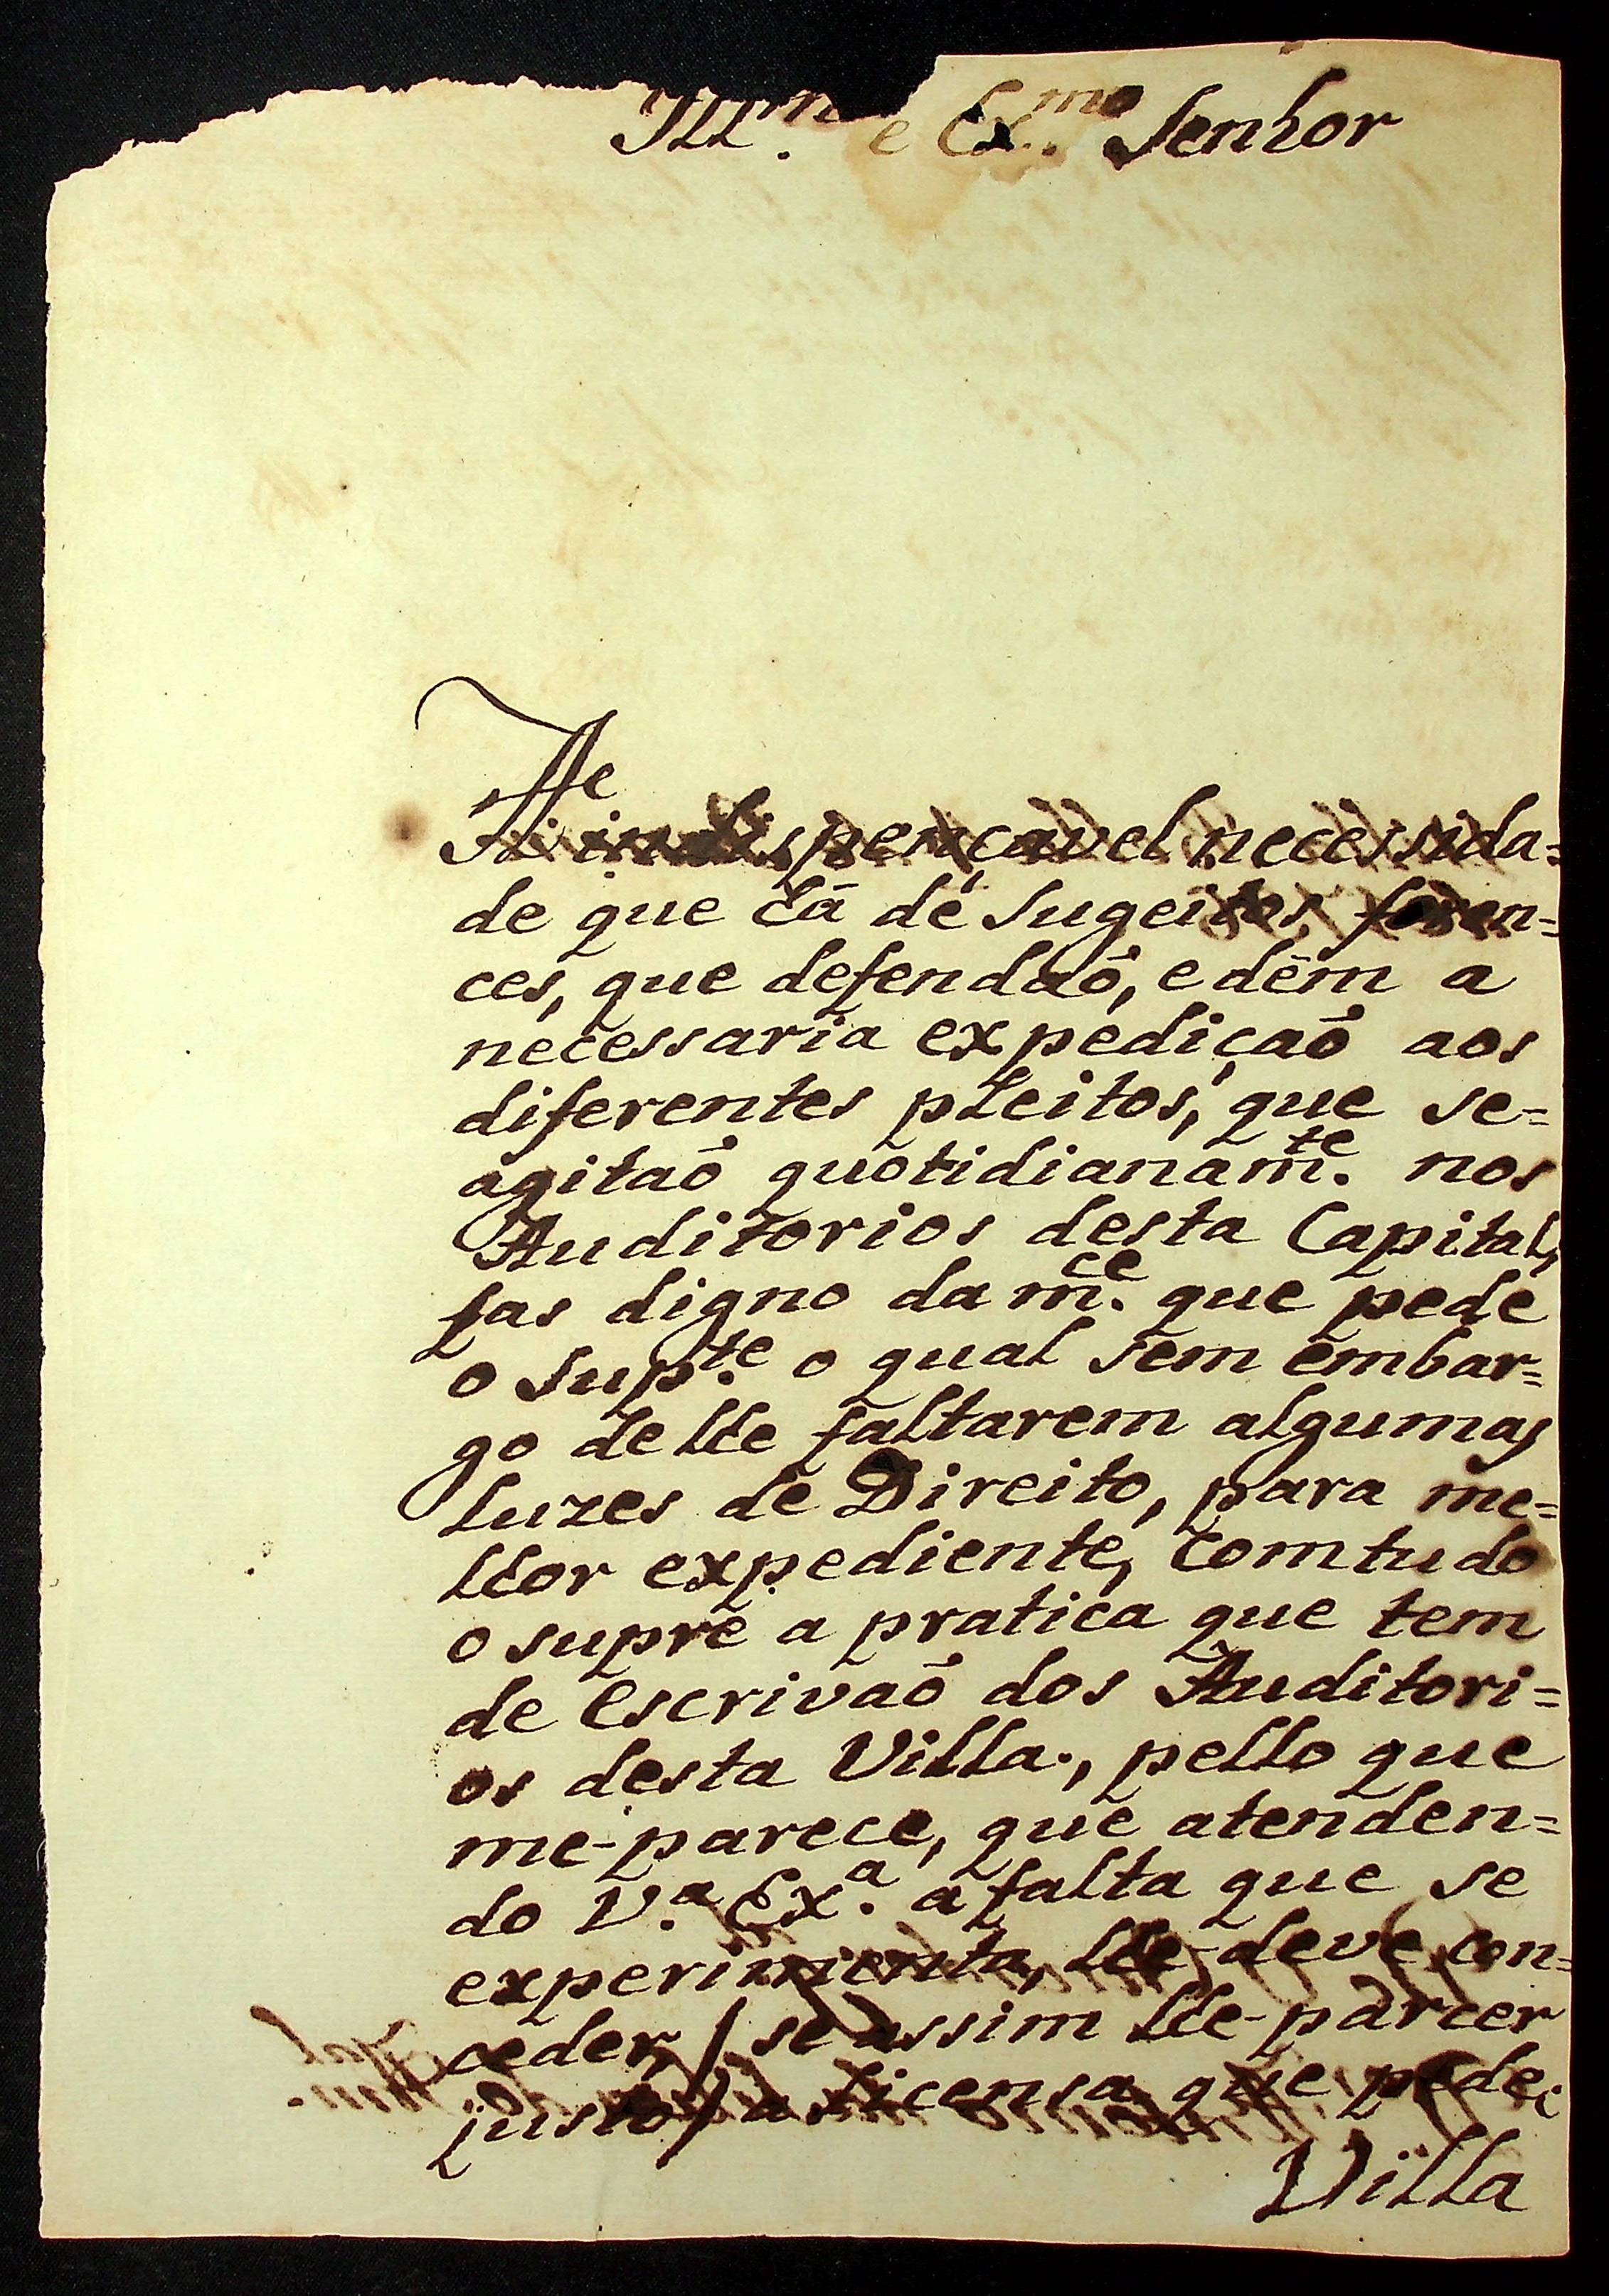 Ill.mo e Ex.mo Senhor
He
A indispençavel necessida=
de que há de Sugeitos foren=
ces, que defendaõ, e dêm a
necessaria expediçaõ aos
diferentes pleitos, que se=
agitaõ quotidianam.te nos
Auditorios desta Capital,
fas digno da m.ce que pede
o Sup.te o qual sem embar=
go de lhe faltarem algumas
Luzes de Direito, para me=
lhor expediente, comtudo
o supre a pratica que tem
de Escrivaõ dos Auditori=
os desta Villa., pello que
me-parece, que atenden=
do V.a Ex.a a falta que se
experimenta, lhe-deve con=
ceder, / se assim lhe-parcer
justo / a Licensa que pede;
Villa